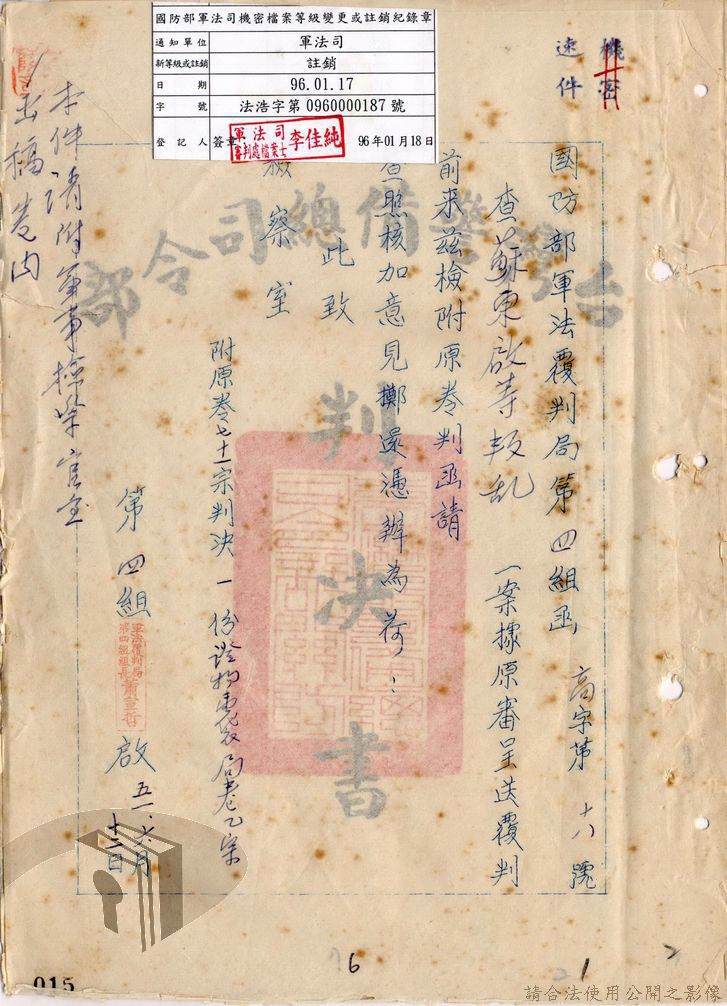 國防部軍法司機密檔案等級變更或註銷紀錄章
通知單位 軍法司
新等級或註銷 註銷
日期 96.01.17
字號 法浩字第0960000187號
登記人 簽章 軍法司 審判處檔案士 李佳純 96年01月18日
機密
速件
國防部軍法覆判局第四組函 高字第 十八 號
查蘇東啟等叛乱 一案據原審呈送覆判
前來茲檢附原卷判函請
查照核加意見擲還憑辦為荷:
此致
檢察室
附原卷七十一宗判決一份證物袋
第四組 啟
五一、六月
十二日
本件請附軍事檢察官
出搞卷內
台灣警備總司令部
判決書
015
6
1
2
請合法使用公開之影像